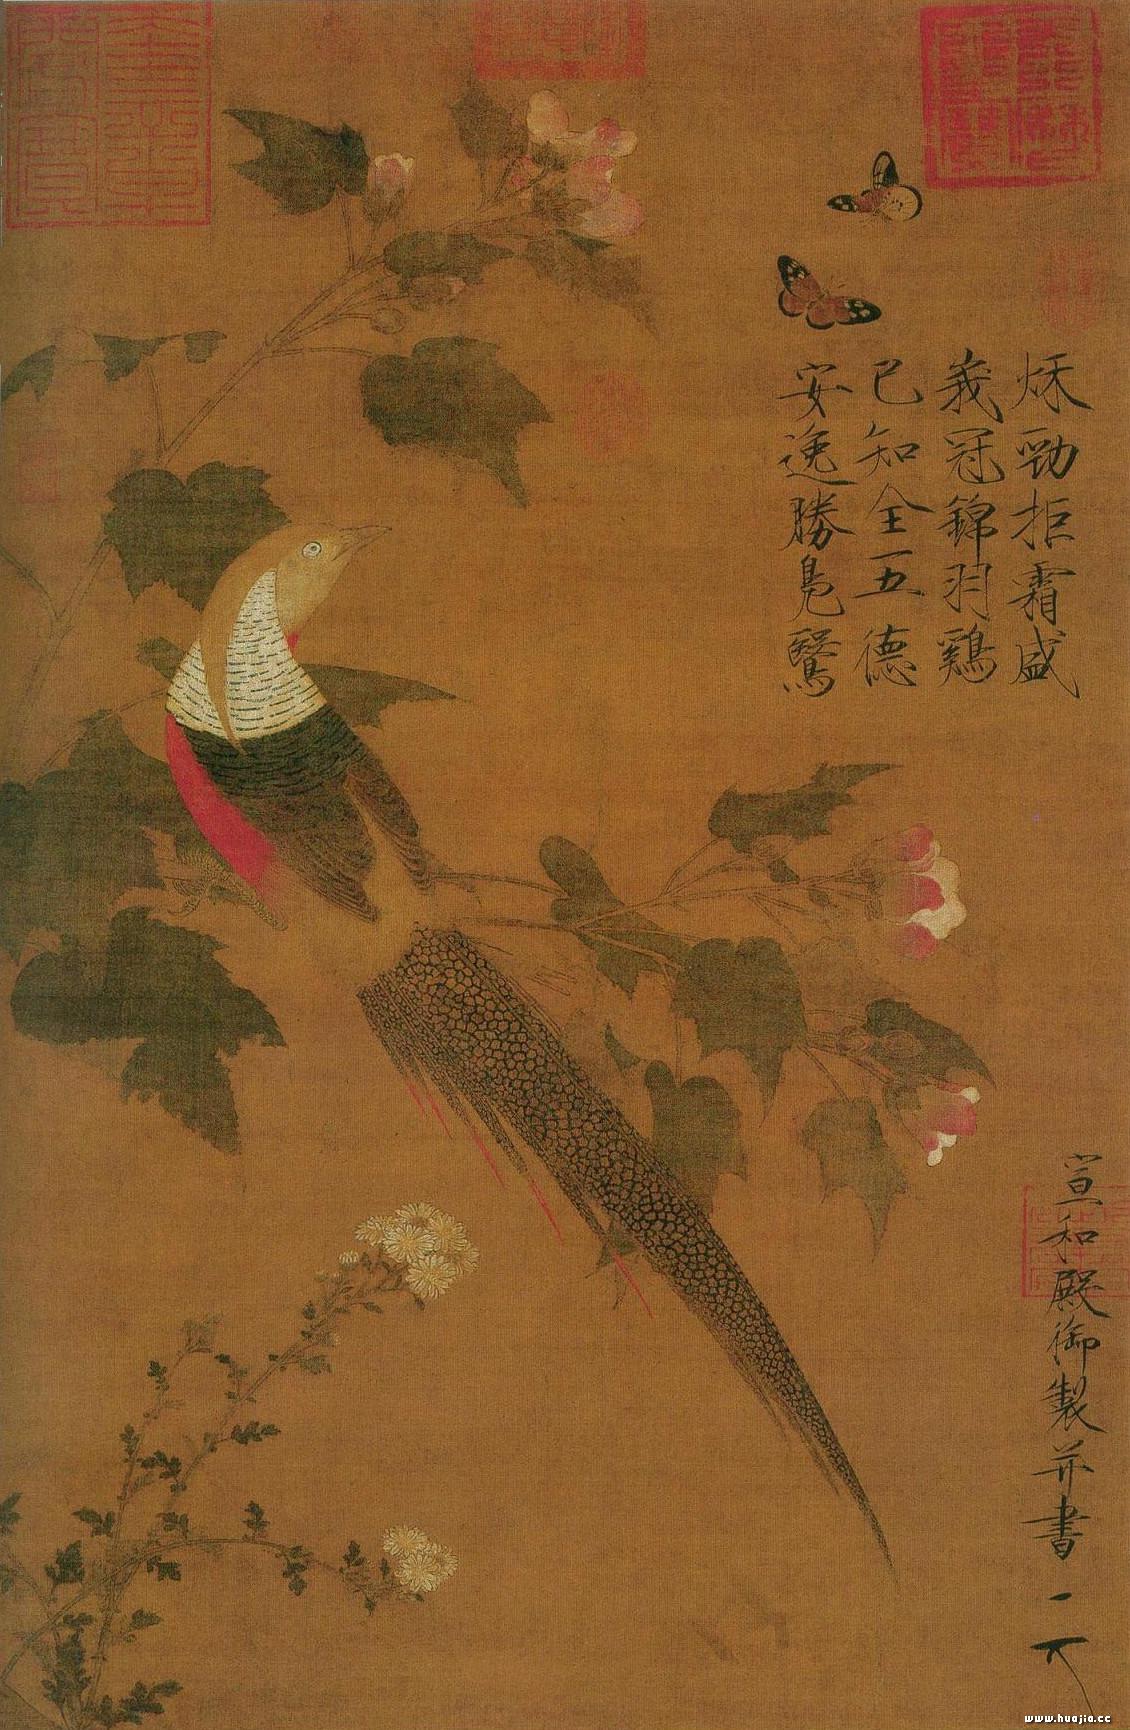 秌勁拒霜盛
峩冠錦羽鷄
已知全五德
安逸勝鳧鷖
宣和殿御製并書
www.huajia.cc